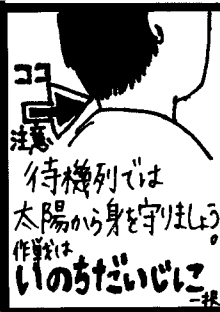 ココ
注意
待機列では
太陽から身を守りましょう!
作戦は
いのちだいじに